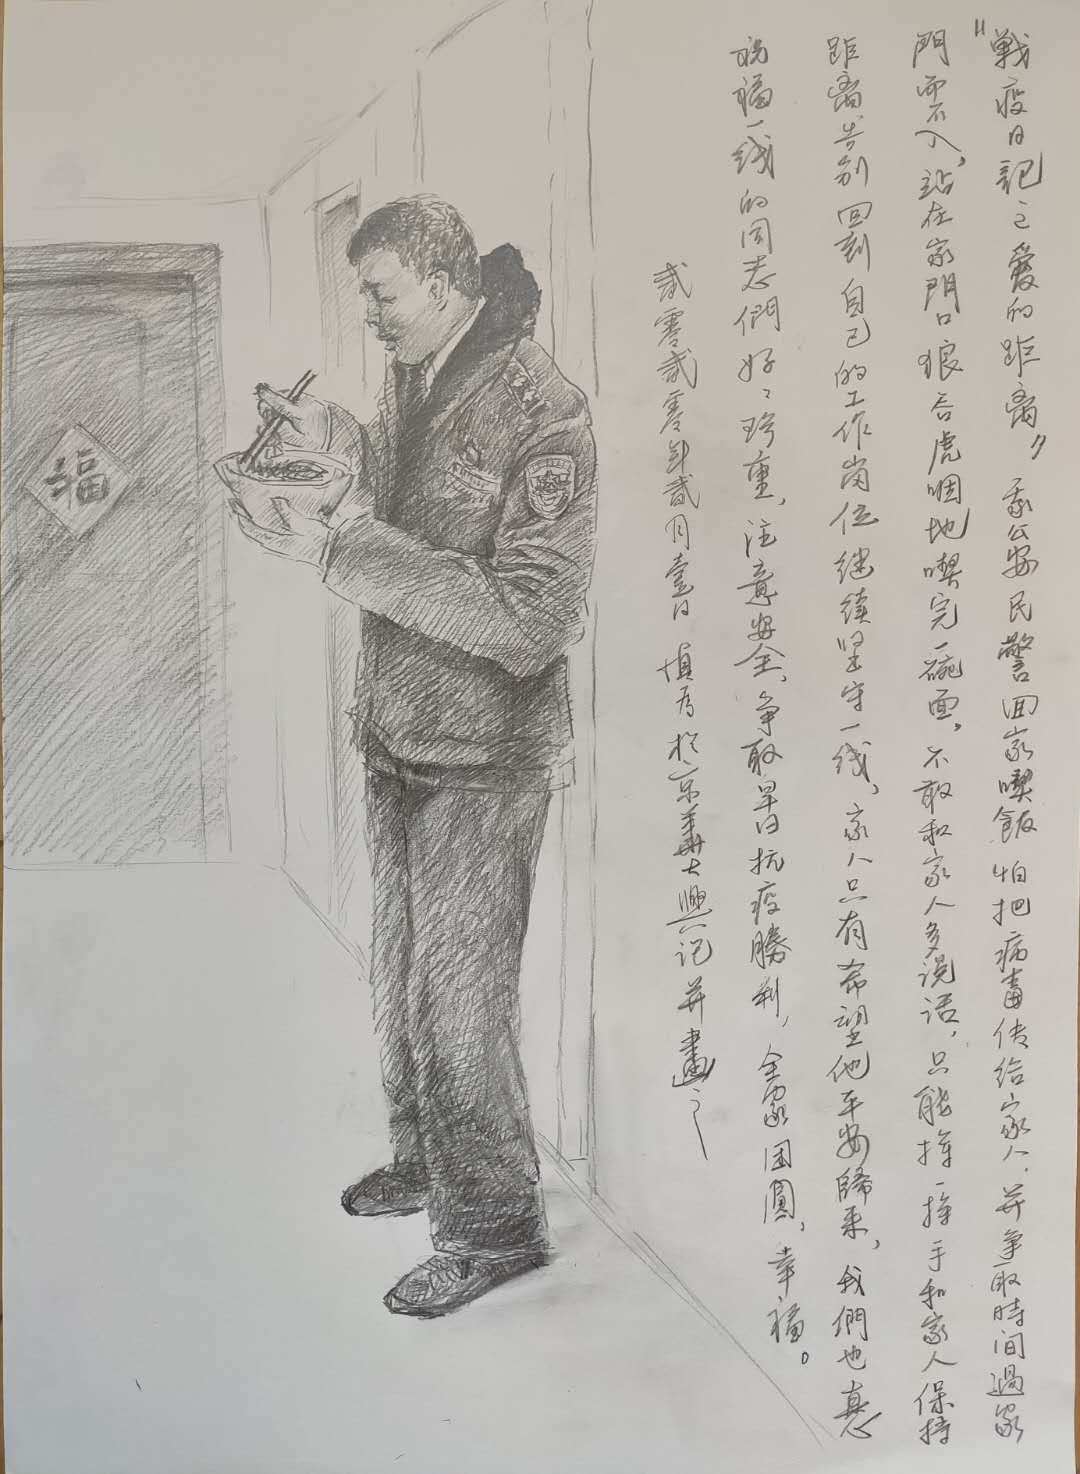 "戰疫日記之愛的距离" 我公安民警回家喫飯怕把病毒传给家人，并争取時间過家
門而不入，站在家門口狼吞虎咽地喫完一碗面，不敢和家人多说话，只能挥一挥手和家人保持
距离告别回到自己的工作岗位继续坚守一线，家人只有希望他平安歸来，我們也真心
祝福一线的同志們好好珍重，注意安全，争取早日抗疫勝利，全家团圓，幸福。
贰零贰零年贰月壹日 慎为於京兆大興记并畫之
福